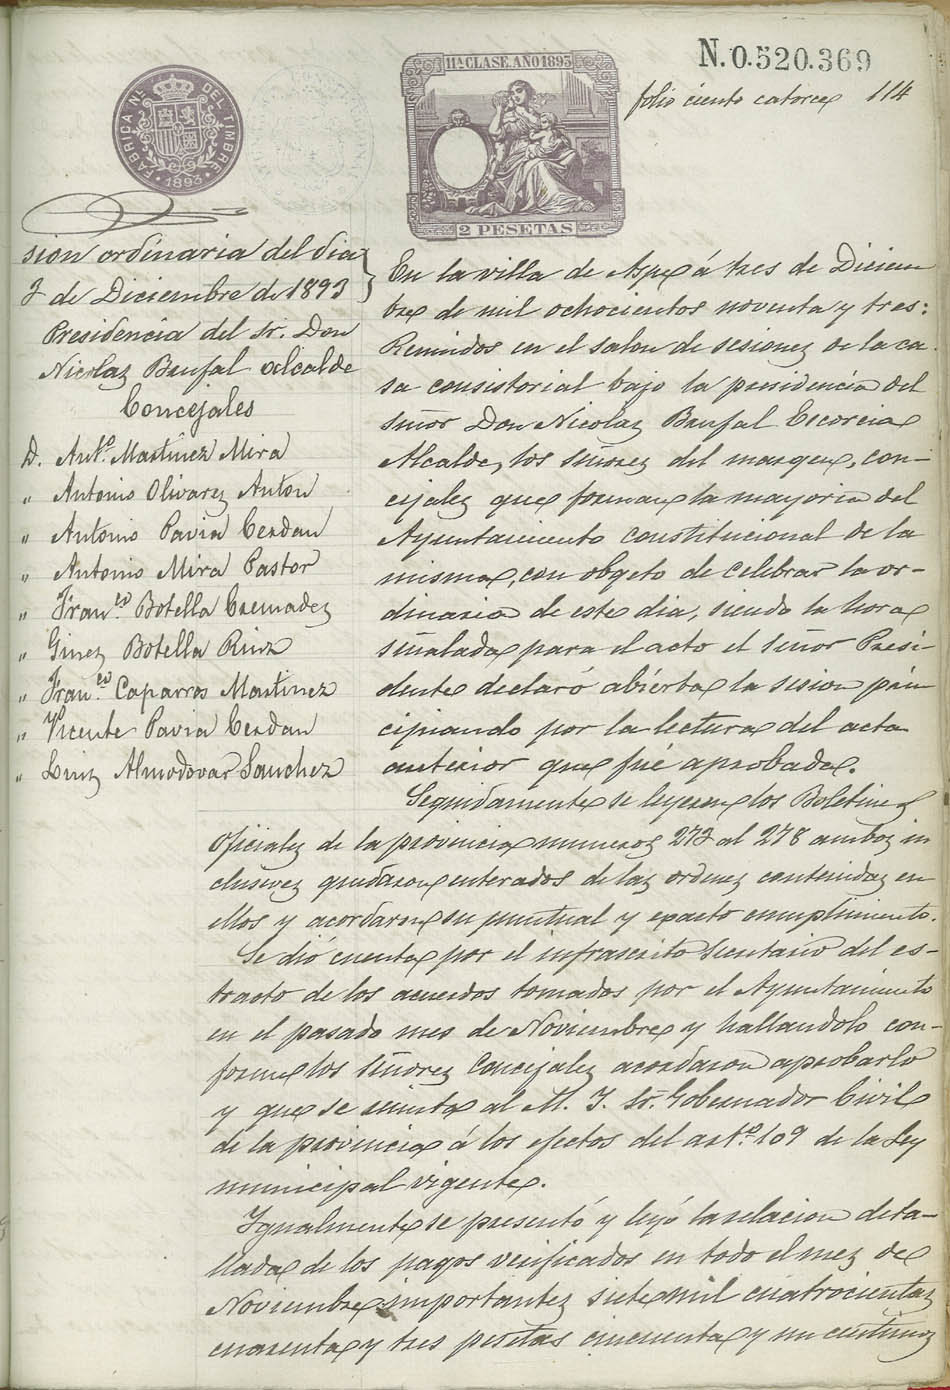 N. 0.520.369
folio ciento catorce 114
FABRICA Nal. DEL TIMBRE
1893
11ª CLASE. AÑO 1893
2 PESETAS
sion ordinaria del dia
3 de Diciembre de 1893
Presidencia del Sr. Don
Nicolas Bonfal alcalde
Concejales
D. Antº. Martinez Mira
" Antonio Olivarez Anton
" Antonio Pavia Cerdan
" Antonio Mira Pastor
" Franco. Botella Cremadez
" Ginez Botella Ruiz
" Franco. Caparros Martinez
" Vicente Pavia Cerdan
" Luiz Almodovar Sanchez
En la villa de Aspe á tres de Diciem
bre de mil ochocientos noventa y tres:
Reunidos en el salon de sesionez de la ca
sa consistorial bajo la presidencia del
señor Don Nicolaz Bonfal Escorcia
Alcalde, los señorez del margen, con-
cejalez que forman la mayoria del
Ayuntamiento constitucional de la
misma, con obgeto de celebrar la or-
dinaria de este dia, siendo la hora
señalada para el acto el señor Presi-
dente declaró abierta la sesion prin
cipiando por la lectura del acta
anterior que fué aprobada.
Seguidamente se leyeron los Boletinez
oficialez de la provincia numeroz 273 al 278 amboz in
clusivez quedaron enterados de laz ordenez contenidaz en
ellos y acordaron su puntual y exacto cumplimiento.
Se dió cuenta por el infrascrito Secretario del es-
tracto de los acuerdos tomados por el Ayuntamiento
en el pasado mes de Noviembre y hallandolo con-
forme los señorez Concejalez acordaron aprobarlo
y que se remita al M. I. Sr. Gobernador Civil
de la provincia á los efectos del artº. 109 de la Ley
municipal vigente.
Igualmente se presentó y leyó la relacion deta-
llada de los pagos verificados en todo el mez de
Noviembre importantez siete mil cuatrocientaz
cuarenta y tres pesetas cincuenta y un centimoz